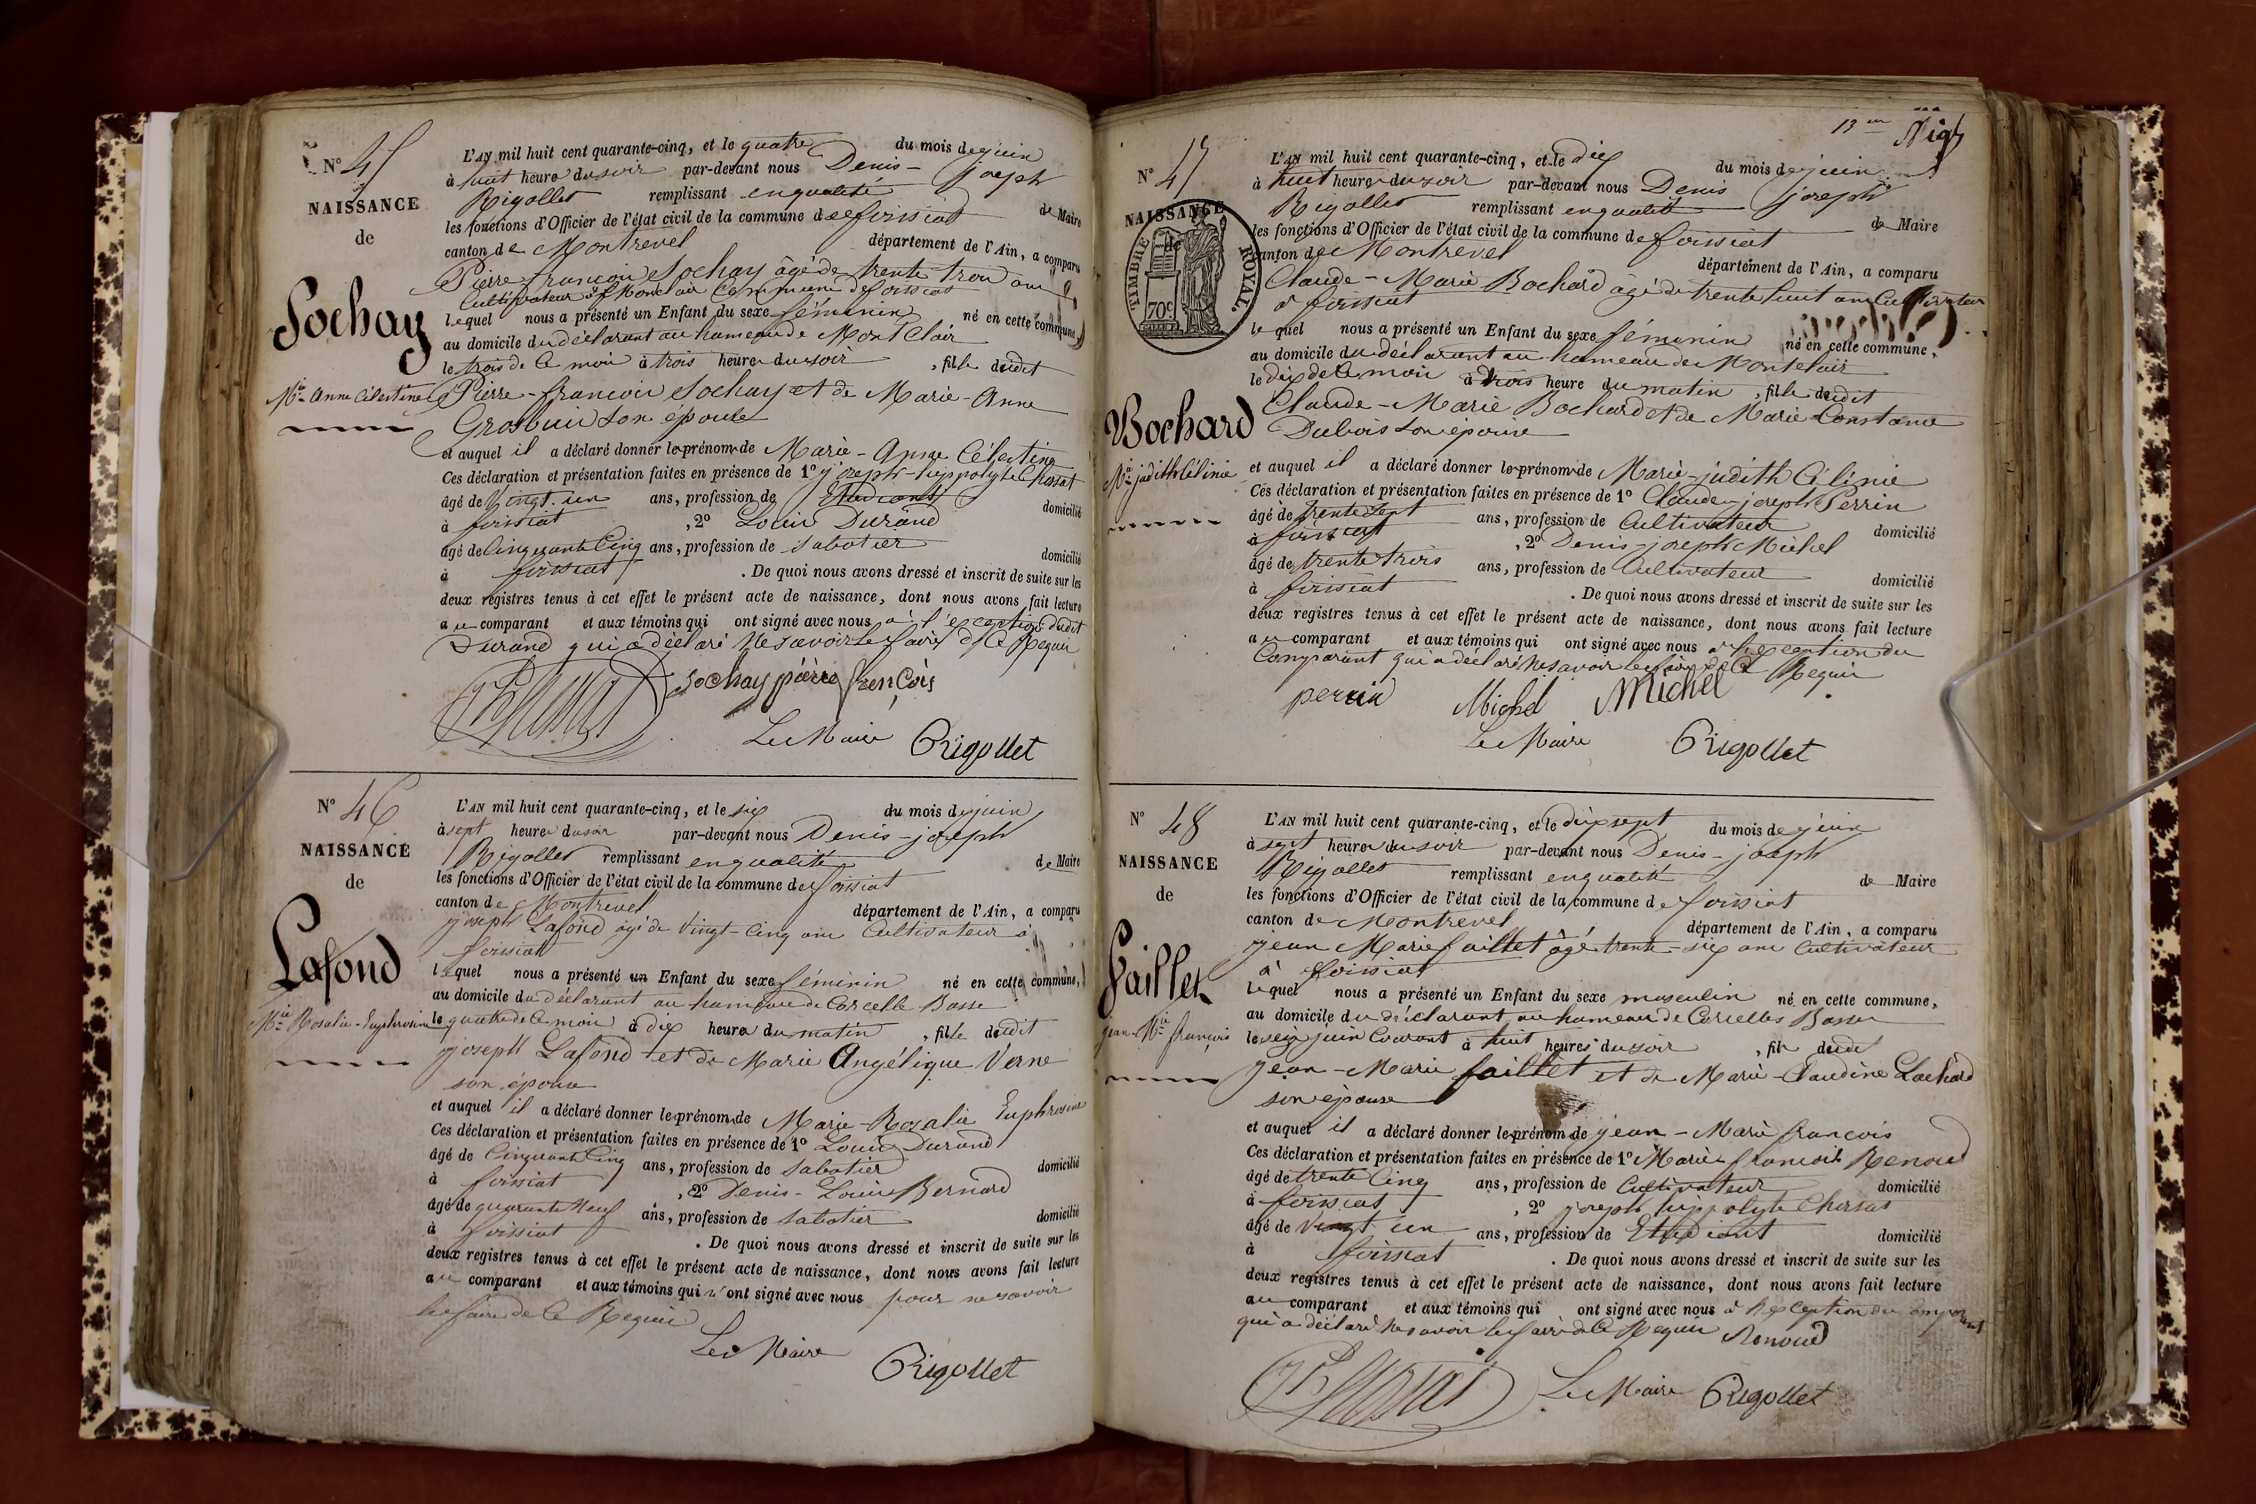 N° 45
NAISSANCE
de
Sochay
Mie Anne Célestine
L'AN mil huit cent quarante-cinq, et le quatre du mois de juin
à huit heures du soir par-devant nous Denis-joseph
Rigollet remplissant en qualité de Maire
les fonctions d'Officier de l'état civil de la commune de foissiat
canton de Montrevel département de l'Ain, a comparu
Pierre-françois Sochay âgé de trente trois ans
Cultivateur à Monclair Commune de foissiat
lequel nous a présenté un Enfant du sexe féminin né en cette commune,
au domicile du déclarant au hameau de Mont Clair
le trois de ce mois à trois heures du soir, fille dudit
Pierre-françois Sochay et de Marie-Anne
Grosbuis son épouse
et auquel il a déclaré donner les prénoms de Marie-Anne Célestine
Ces déclaration et présentation faites en présence de 1° joseph-hippolyte Chossat
âgé de Vingt-un ans, profession de Etudiant domicilié
à foissiat, 2° Louis Durand
âgé de Cinquante Cinq ans, profession de Sabotier domicilié
à foissiat. De quoi nous avons dressé et inscrit de suite sur les
deux registres tenus à cet effet le présent acte de naissance, dont nous avons fait lecture
au comparant et aux témoins qui ont signé avec nous à l'exception dudit
Durand qui a déclaré ne savoir le faire de ce Requis
Sochay pierre françois
Le Maire Rigollet
N° 46
NAISSANCE
de
Lafond
Mie Rosalie-Euphrosine
L'AN mil huit cent quarante-cinq, et le six du mois de juin
à sept heures du soir par-devant nous Denis-joseph
Rigollet remplissant en qualité de Maire
les fonctions d'Officier de l'état civil de la commune de foissiat
canton de Montrevel département de l'Ain, a comparu
joseph Lafond âgé de Vingt-Cinq ans Cultivateur à
foissiat
lequel nous a présenté un Enfant du sexe féminin né en cette commune,
au domicile du déclarant au hameau de Corcelle Basse
le quatre de ce mois à dix heures du matin, fille dudit
joseph Lafond et de Marie Angélique Verne
son épouse
et auquel il a déclaré donner les prénoms de Marie-Rosalie Euphrosine
Ces déclaration et présentation faites en présence de 1° Louis Durand
âgé de Cinquante Cinq ans, profession de Sabotier domicilié
à foissiat, 2° Denis-Louis Bernard
âgé de quarante Neuf ans, profession de Sabotier domicilié
à foissiat. De quoi nous avons dressé et inscrit de suite sur les
deux registres tenus à cet effet le présent acte de naissance, dont nous avons fait lecture
au comparant et aux témoins qui n'ont signé avec nous pour ne savoir
le faire de ce Requis
Le Maire Rigollet
13
N° 47
NAISSANCE
de
TIMBRE ROYAL
70c
Bochard
Mie judith Célinie
L'AN mil huit cent quarante-cinq, et le dix du mois de juin
à huit heures du soir par-devant nous Denis joseph
Rigollet remplissant en qualité de Maire
les fonctions d'Officier de l'état civil de la commune de foissiat
canton de Montrevel département de l'Ain, a comparu
Claude-Marie Bochard âgé de trente huit ans Cultivateur
à foissiat
lequel nous a présenté un Enfant du sexe féminin né en cette commune,
au domicile du déclarant au hameau de Montclair
le dix de ce mois à trois heures du matin, fille dudit
Claude-Marie Bochard et de Marie-Constance
Dubois son épouse
et auquel il a déclaré donner les prénoms de Marie-judith Célinie
Ces déclaration et présentation faites en présence de 1° Claude-joseph Perrin
âgé de trente Sept ans, profession de Cultivateur domicilié
à foissiat, 2° Denis-joseph Michel
âgé de trente trois ans, profession de Cultivateur domicilié
à foissiat. De quoi nous avons dressé et inscrit de suite sur les
deux registres tenus à cet effet le présent acte de naissance, dont nous avons fait lecture
au comparant et aux témoins qui ont signé avec nous à l'exception du
Comparant qui a déclaré ne savoir le faire de ce Requis
perrin Michel Michel
Le Maire Rigollet
N° 48
NAISSANCE
de
faillet
jean-Mie françois
L'AN mil huit cent quarante-cinq, et le dix sept du mois de juin
à sept heures du soir par-devant nous Denis-joseph
Rigollet remplissant en qualité de Maire
les fonctions d'Officier de l'état civil de la commune de foissiat
canton de Montrevel département de l'Ain, a comparu
jean Marie faillet âgé trente-six ans Cultivateur
à foissiat
lequel nous a présenté un Enfant du sexe masculin né en cette commune,
au domicile du déclarant au hameau de Corcelles Basses
le seize juin Courant à huit heures du soir, fils dudit
jean-Marie faillet et de Marie-Claudine Lachard
son épouse
et auquel il a déclaré donner les prénoms de jean-Marie françois
Ces déclaration et présentation faites en présence de 1° Marie françois Renoud
âgé de trente Cinq ans, profession de Cultivateur domicilié
à foissiat, 2° joseph hippolyte Chossat
âgé de Vingt un ans, profession de Etudiant domicilié
à foissiat. De quoi nous avons dressé et inscrit de suite sur les
deux registres tenus à cet effet le présent acte de naissance, dont nous avons fait lecture
au comparant et aux témoins qui ont signé avec nous à l'exception du comparant
qui a déclaré ne savoir le faire de ce Requis Renoud
Le Maire Rigollet